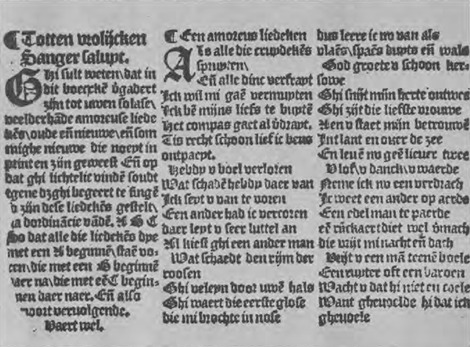 ¶ Totten vrolijcken
Sanger saluyt.
GHi sult weten dat in
dit boecxkē vgadert
zijn tot uwen solase
veelderhāde amoreuse liede
kēs, oude eñ nieuwe, eñ som
mighe nieuwe die noeyt in
printen zijn geweest Eñ op
dat ghi lichtelic vindē soudt
tgene dz ghi begeert te singē
dese liedekēs gestelt
a bordinācie vādē. A B C
So dat alle die liedekēs dye
met een A beginnē staē vo-
ren, die met een B beginnē
daer na, die met eē C begin-
nen daer naer. Eñ also
voort vervolgende.
Vaert wel.
¶ Een amoreus liedeken
ALs alle die cruydekēs
spruyten
Eñ alle dinc verfrayt
Ick wil mi gaē vermuyten
Ick bē mijns liefs te buytē
Het compas gaet al
Tis recht schoon lief ic beus
ontpaeyt.
Hebdy v boel verloren
Wat schadē hebdy daer van
Ick seyt v van te voren
Een ander had ic vercoren
daer leyt v seer luttel an
Ay kiest ghi een ander man
Wat schaedt den rijm der
roosen
Ghi veleyn door uwē hals
Ghi waert die eerste glose
die mi brochte in nose
dus leere ic vo van als
vlaēs spaēs duyts eñ wals
God groete v schoon ker-
souwe
Ghi snijt mijn herte ontwee
Ghi zijt die liefste vrouwe
Aen v staet mijn betrouwē
Int lant en over de zee
En leuē vo geē liever twee
Vlof v danck v waerde
Neme ick vo een verdrach
Ic weet een ander op aerde
Een edel man te paerde
eñ ruckaert diet wel vmach
die vrijt mi nacht en dach
Vrijt v een mā teenē boele
Een ruyter oft een baroen
Wacht v dat hi niet en coele
Want ghevoelde hi dat ich
ghevoele